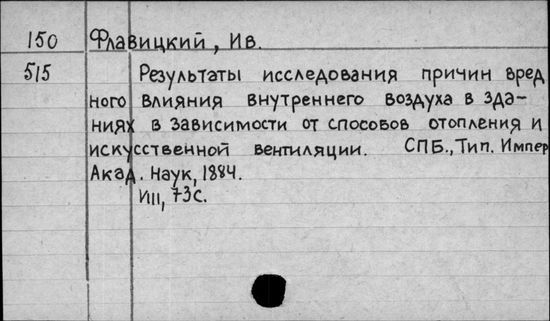 150 Флавицкий, Ив.
515 Результаты исследования причин вред
ного влияния внутреннего воздуха в зда-
ниях в зависимости от способов отопления и
искусственной вентиляции. СПБ., Тип. Импер
Акад. Наук, 1884.
VIII, 73 с.